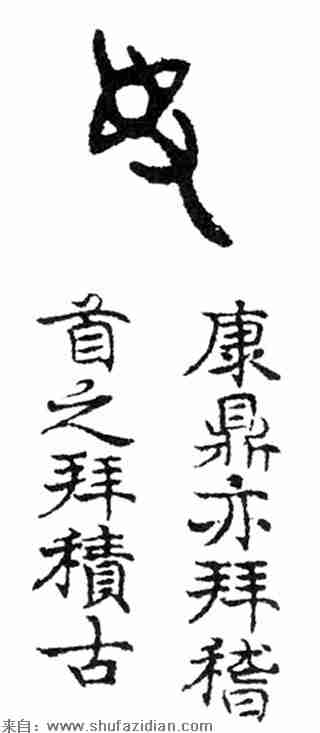 康鼎亦拜稽
首之拜積古
来自：www.shufazidian.com